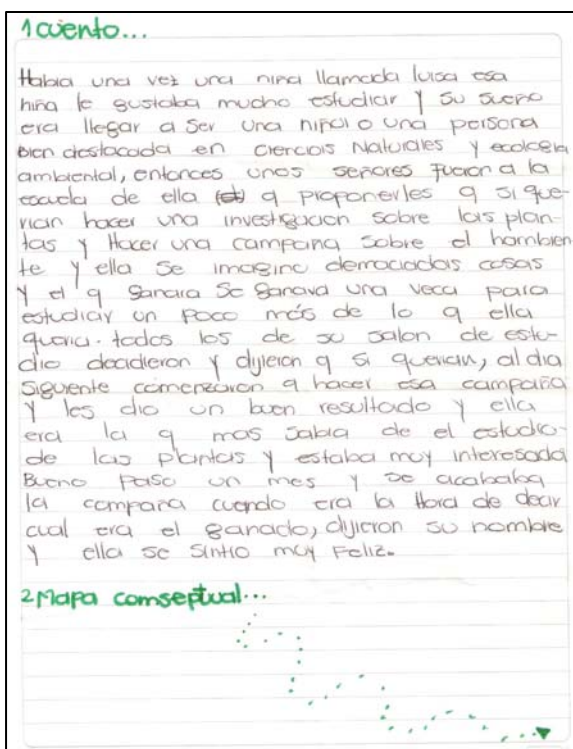 1 cuento...
Habia una vez una niña llamada luisa esa
niña le gustaba mucho estudiar y su sueño
era llegar a ser una niña o una persona
bien destacada en ciencias Naturales y ecologia
ambiental, entonces unos señores fueron a la
escuela de ella a proponerles q si que-
rian hacer una investigacion sobre las plan-
tas y Hacer una campaina sobre el hambien
te y ella se imagino demaciadas cosas
y el q ganara se ganava una veca para
estudiar un poco más de lo q ella
queria. todos los de su salon de estu-
dio decidieron y dijieron q si querian, al dia
siguiente comenzaron a hacer esa campaña
y les dio un buen resultado y ella
era la q mas sabia de el estudio
de las plantas y estaba muy interesada
Bueno paso un mes y se acababa
la compaña cuando era la Hora de decir
cual era el ganado, dijieron su nombre
y ella se sintio muy Feliz.
2 Mapa comseptual...